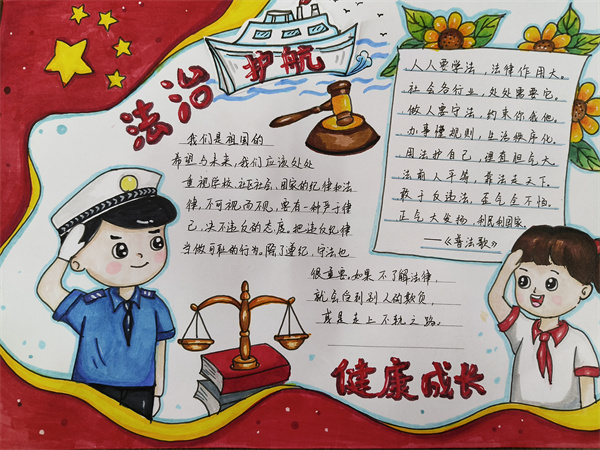 法治
护航
我们是祖国的
希望与未来，我们应该处处
重视学校、社区社会、国家的纪律和法
律，不可视而不见，要有一种严于律
己，决不违反的态度，把违反纪律
当做可耻的行为。除了遵纪，守法也
很重要，如果不了解法律，
就会受到别人的欺负，
或是走上不轨之路。
人人要学法，法律作用大。
社会各行业，处处需要它。
做人要守法，约束你我他。
办事懂规则，生活秩序化。
用法护自己，理直胆气大。
法前人平等，靠法走天下。
敢于反违法，歪气全不怕。
正气大发扬，利民利国家。
——《普法歌》
健康成长